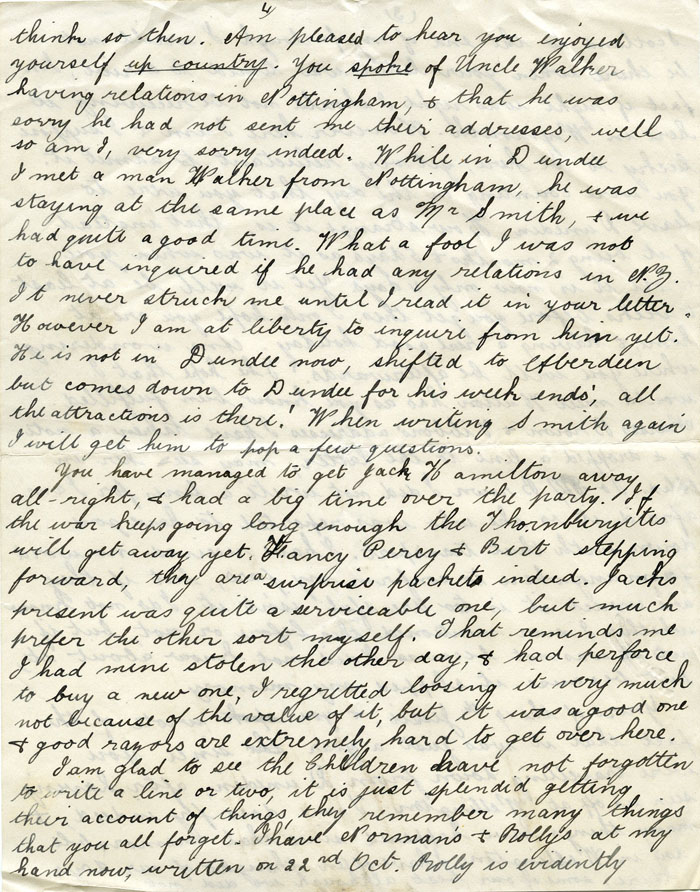 4
think so then. Am pleased to hear you enjoyed
yourself up country. You spoke of Uncle Walker
having relations in Nottingham, & that he was
sorry he had not sent me their addresses, well
so am I, very sorry indeed. While in Dundee
I met a man Walker from Nottingham, he was
staying at the same place as Mr Smith, & we
had quite a good time. What a fool I was not
to have inquired if he had any relations in N.Z.
It never struck me until I read it in your letter.
However I am at liberty to inquiri from him yet.
He is not in Dundee now, shifted to Aberdeen
but comes down to Dundee for his week ends', all
the attractions is there! When writing Smith again
I will get him to pop a few questions.
You have managed to get Jack Hamilton away
all-right, & had a big time over the party. If
the war keeps going long enough the Thornburyites
will get away yet. Fancy Percy & Birt stepping
forward, they are a surprise packets indeed. Jacks
present was quite a serviceable one, but much
prefer the other sort myself. That reminds me
I had mine stolen the other day, & had perforce
to buy a new one, I regretted loosing it very much
not because of the value of it, but it was a good one
& good razors are extremely hard to get over here.
I am glad to see the Children have not forgotten
to write a line or two, it is just splendid getting
their account of things, they remember many things
that you all forget. I have Norman's & Rolly's at my
hand now, written on 22nd Oct. Rolly is evidently